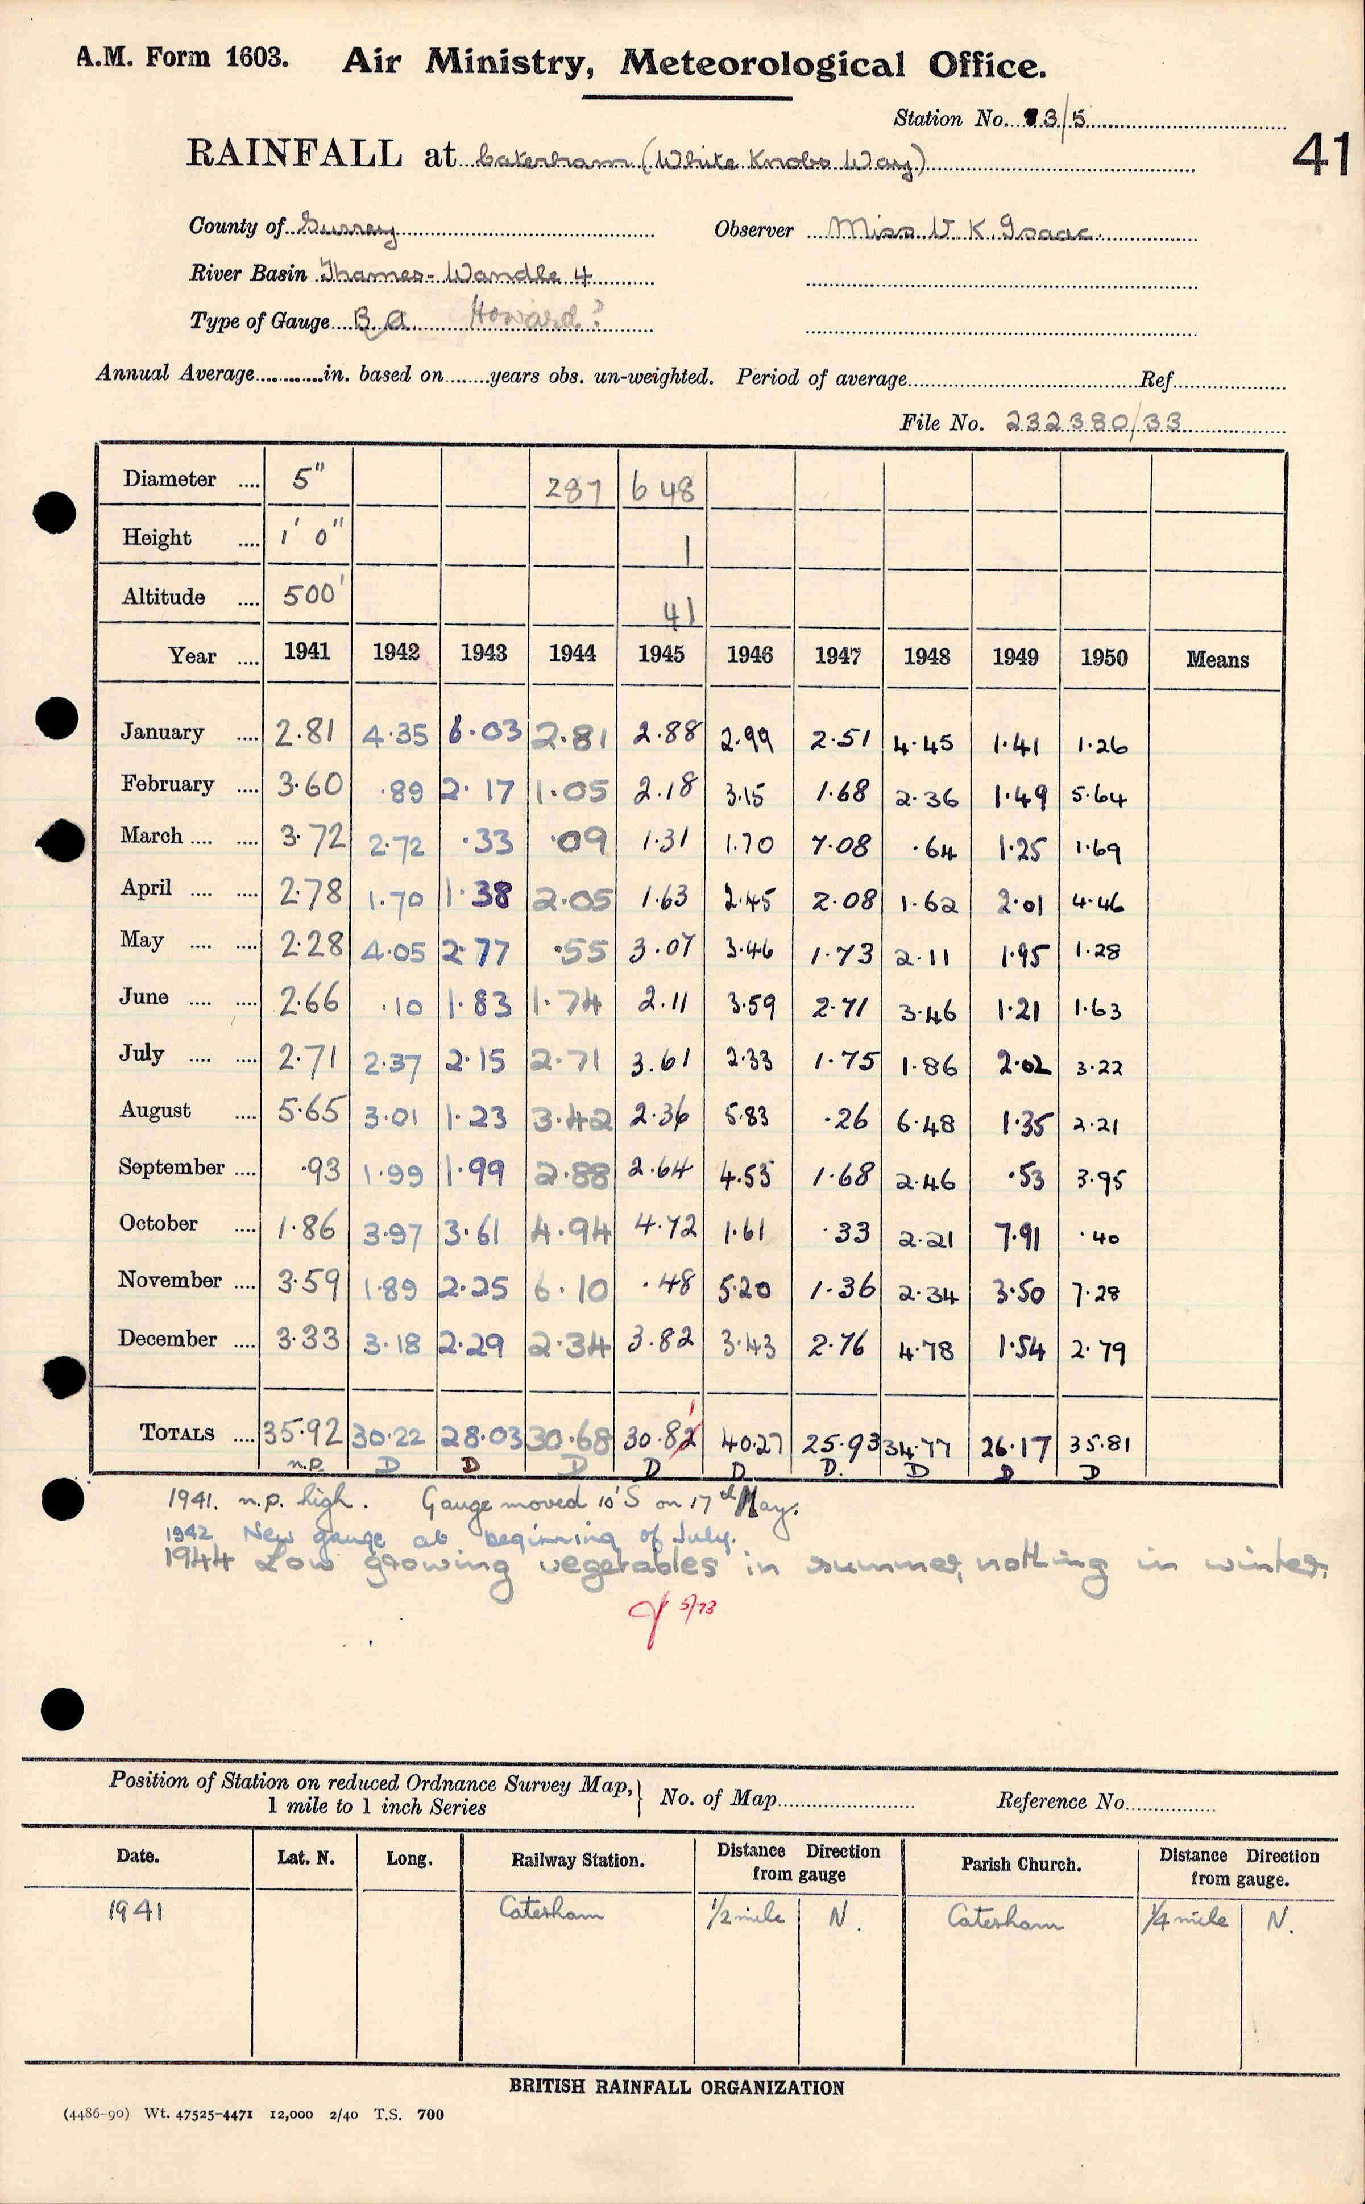 A.M. Form 1603. Air Ministry, Meteorological Office.
Station No. 73/5
41
RAINFALL at Caterham (White Knobs Way)
County of Surrey Observer Miss V. K. Isaac.
River Basin Thames - Wandle 4
Type of Gauge B.A. Howard?
Annual Average............in. based on........years obs. un-weighted. Period of average Ref
File No. 232380/33
Diameter .... 5" 287 648
Height .... 1' 0" 1
Altitude .... 500' 41
Year .... 1941 1942 1943 1944 1945 1946 1947 1948 1949 1950 Means
January .... 2.81 4.35 6.03 2.81 2.88 2.99 2.51 4.45 1.41 1.26
February .... 3.60 .89 2.17 1.05 2.18 3.15 1.68 2.36 1.49 5.64
March .... .... 3.72 2.72 .33 .09 1.31 1.70 7.08 .64 1.25 1.69
April .... .... 2.78 1.70 1.38 2.05 1.63 2.45 2.08 1.62 2.01 4.46
May .... .... 2.28 4.05 2.77 .55 3.07 3.46 1.73 2.11 1.95 1.28
June .... .... 2.66 .10 1.83 1.74 2.11 3.59 2.71 3.46 1.21 1.63
July .... .... 2.71 2.37 2.15 2.71 3.61 2.33 1.75 1.86 2.02 3.22
August .... 5.65 3.01 1.23 3.42 2.36 5.83 .26 6.48 1.35 2.21
September .... .93 1.99 1.99 2.88 2.64 4.53 1.68 2.46 .53 3.95
October .... 1.86 3.97 3.61 4.94 4.72 1.61 .33 2.21 7.91 .40
November .... 3.59 1.89 2.25 6.10 .48 5.20 1.36 2.34 3.50 7.28
December .... 3.33 3.18 2.29 2.34 3.82 3.43 2.76 4.78 1.54 2.79
1
TOTALS .... 35.92 30.22 28.03 30.68 30.82 40.27 25.93 34.77 26.17 35.81
n.p. D D D D D D. D D D
1941. n.p. high. Gauge moved 10'S on 17th May.
1942 New gauge at beginning of July.
1944 Low growing vegetables in summer, nothing in winter.
5/73
Position of Station on reduced Ordnance Survey Map, 1 mile to 1 inch Series } No. of Map Reference No.
Date. Lat. N. Long. Railway Station. Distance Direction from gauge Parish Church. Distance Direction from gauge.
1941 Caterham 1/2 mile N. Caterham 1/4 mile N.
BRITISH RAINFALL ORGANIZATION
(4486-90) Wt. 47525-4471 12,000 2/40 T.S. 700